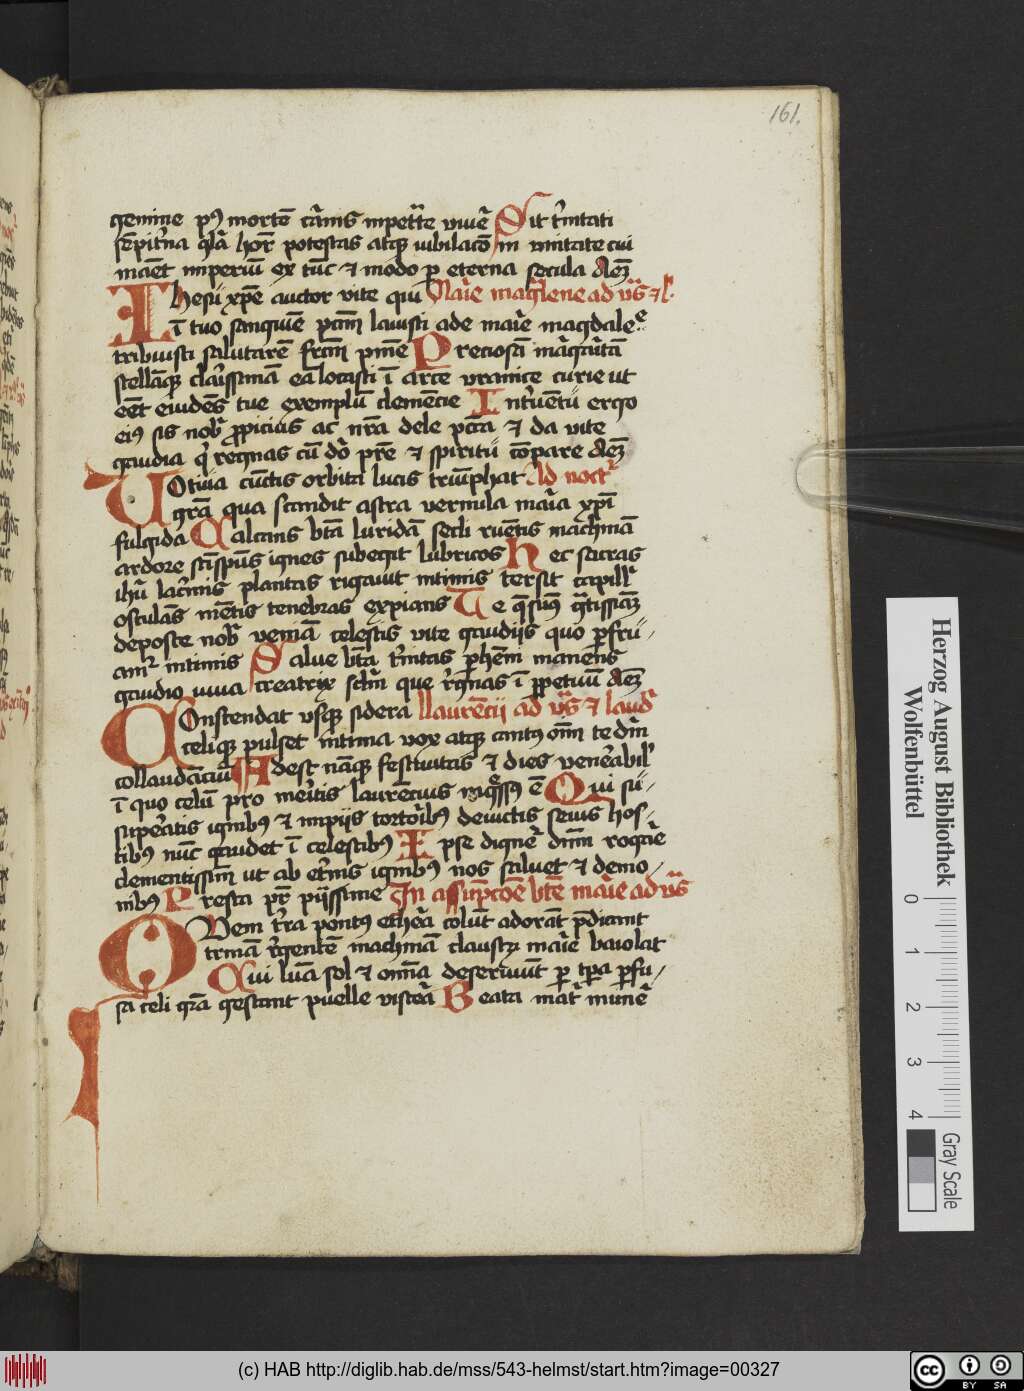 161.
gemine p⁹ mortē cāmis inpet̄te viuē Sit t̄nitati
sēpit̄na gl̄a hoꝛ potestas atqꝫ iubilacō in vnitate cui
manet imperiū ex tūc ⁊ modo p eterna secula Amē
Ihesu xp̄e auctor vite qui Marie magl̄ene ad vs̄ ⁊ l.
ī tuo sanguīe pctm̄ lauisti ade mar̄ie magdale
tribuisti salutarē frc̄m pme Preciosā māgar̄itā
stellāqꝫ clar̄issimā ea locasti ī arce vranice curie ut
eēt eiusdē tue exemplū clemēcie Int̄uētu ergo
ei⁹ sis nob̄ ꝓpicius ac nr̄a dele pctā ⁊ da vite
gaudia q̄ regnas cū dō pr̄e ⁊ spiritu compare Amē
Uotiua cūctis orbita lucis triūphat Ad noct̄
gr̄a qua scandit astra vernula mar̄ia xp̄i
fulgida Calcans bt̄a luridā secli ruētis machinā
ardore sct̄i sp̄us ignes subegit lubricos Hec sacras
ihū lacr̄imis plantas rigauit intimis tersit capill̄
osculās mētis tenebras expians Te qsum⁹ gt̄issiāꝫ
deposce nob̄ veniā celestis vite gaudijs quo p̄fru-
am̄ intimis Salue bt̄a t̄nitas p̄henī manens
gaudio viua creatrix sclm̄ que regnas ī ꝓpetuū Amē
Conscendat vsqꝫ sidera llaurecij ad vs̄ ⁊ laud̄
celiqꝫ pulset intima vox atqꝫ cant⁹ om̄ te dn̄
collaudāciū Adest nāqꝫ festiuitas ⁊ dies venēabil̄
ī quo celū pro mer̄itis laurecius nigssus ē Qui su-
superatis ignib⁹ ⁊ impijs tortorib⁹ deuictis seuis hos-
tib⁹ nūc gaudet ī celestib⁹ Ipse dignē dnm̄ rogāē
clementissim̄ ut ab et̄nis ignib⁹ nos saluet ⁊ demo-
nib⁹ Presta pr̄ pijssime In assūpcōe bt̄e marie ad vs̄
Quem t̄ra pontus ethēa colūt adorāt p̄dicant
t̄nam r̄gentē machinā claustrꝫ mar̄ie baiolat
Cui lūa sol ⁊ omīa deseruiūt p tp̄a p̄fu-
sa celi gr̄a gestant puelle viscēa Beata mat̄ munē
Herzog August Bibliothek
Wolfenbüttel
0 1 2 3 4
Gray Scale
(c) HAB http://diglib.hab.de/mss/543-helmst/start.htm?image=00327
cc BY SA